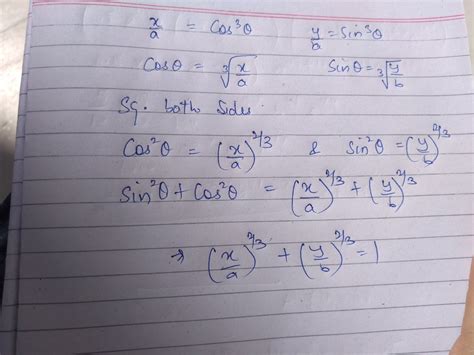 x/a = Cos³θ    y/a = Sin³θ
Cosθ = ∛(x/a)    Sinθ = ∛(y/b)
Sq. both Sides
Cos²θ = (x/a)^2/3 & Sin²θ = (y/b)^2/3
Sin²θ + Cos²θ = (x/a)^2/3 + (y/b)^2/3
→ (x/a)^2/3 + (y/b)^2/3 = 1